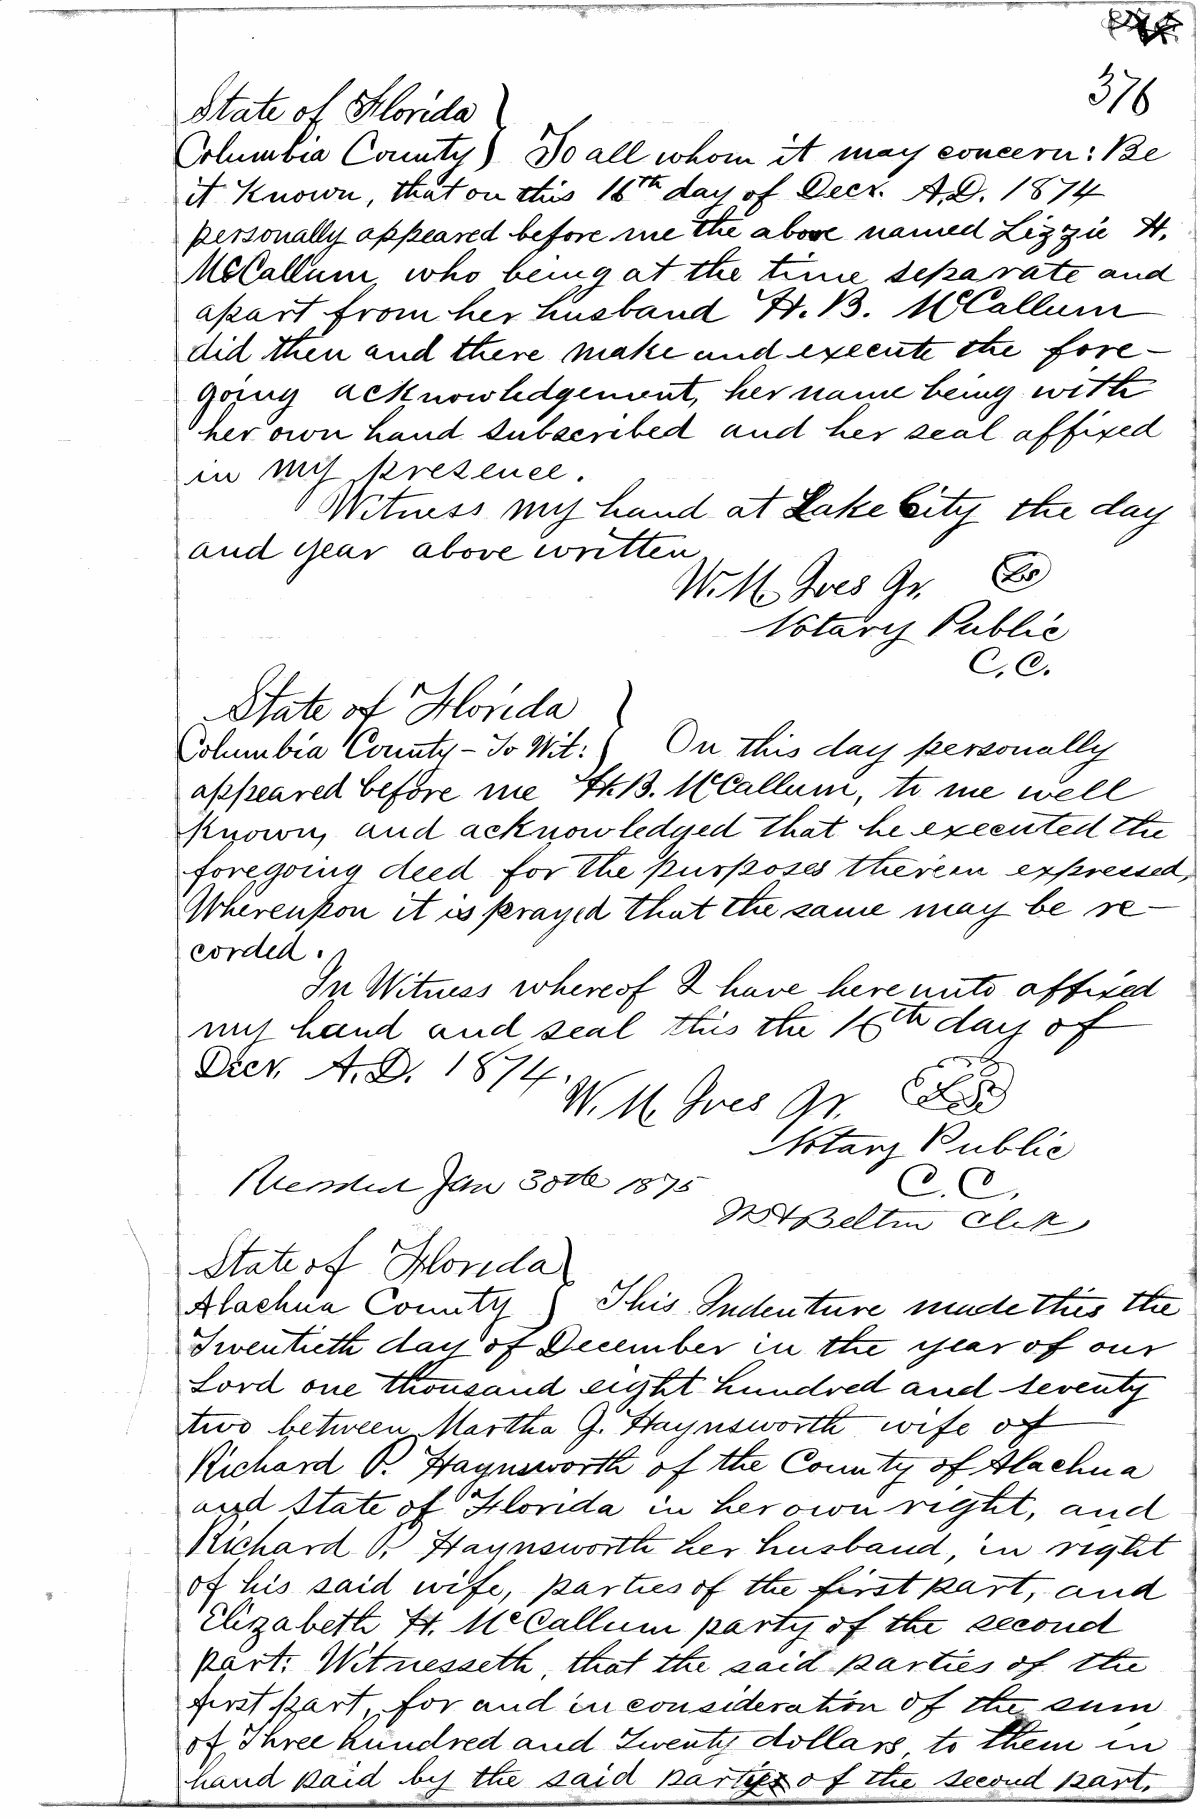 376
State of Florida }
Columbia County } To all whom it may concern: Be
it Known, that on this 16th day of Decr. A.D. 1874
personally appeared before me the above named Lizzie H.
McCallum, who being at the time separate and
apart from her husband H. B. McCallum
did then and there make and execute the fore-
going acknowledgement, her name being with
her own hand subscribed and her seal affixed
in my presence.
Witness my hand at Lake City the day
and year above written
W. M. Ives Jr. LS
Notary Public
C. C.
State of Florida }
Columbia County - To Wit: } On this day personally
appeared before me H. B. McCallum, to me well
known, and acknowledged that he executed the
foregoing deed for the purposes therein expressed,
Whereupon it is prayed that the same may be re-
corded.
In Witness whereof I have hereunto affixed
my hand and seal this the 16th day of
Decr. A.D. 1874.
W. M. Ives Jr. LS
Notary Public
C. C.
Recorded Jan 30th 1875
Belton Clek
State of Florida }
Alachua County } This Indenture made this the
Twentieth day of December in the year of our
Lord one thousand eight hundred and seventy
two between Martha G. Haynsworth wife of
Richard P. Haynsworth of the County of Alachua
and State of Florida in her own right, and
Richard P. Haynsworth her husband, in right
of his said wife, parties of the first part, and
Elizabeth H. McCallum party of the second
part: Witnesseth, that the said parties of the
first part, for and in consideration of the sum
of Three hundred and Twenty dollars, to them in
hand paid by the said party of the second part,